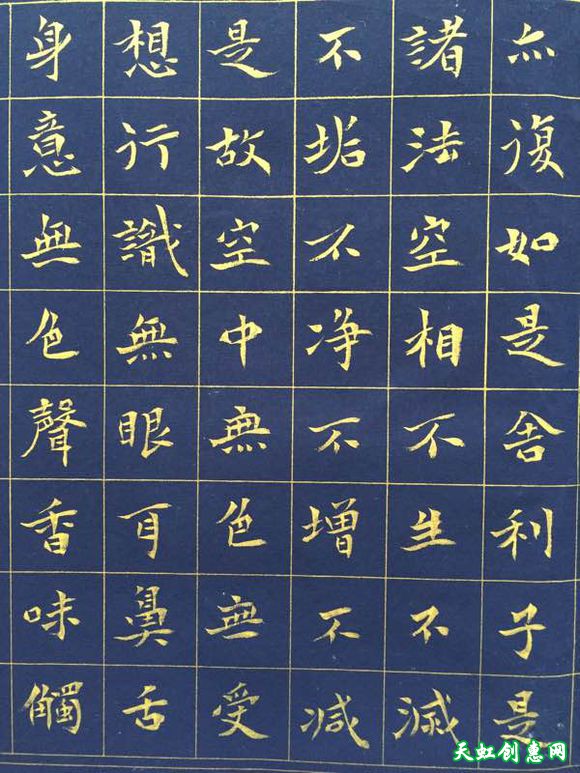 亦復如是舍利子是
諸法空相不生不滅
不垢不净不增不減
是故空中無色無受
想行識無眼耳鼻舌
身意無色聲香味觸
天虹创惠网